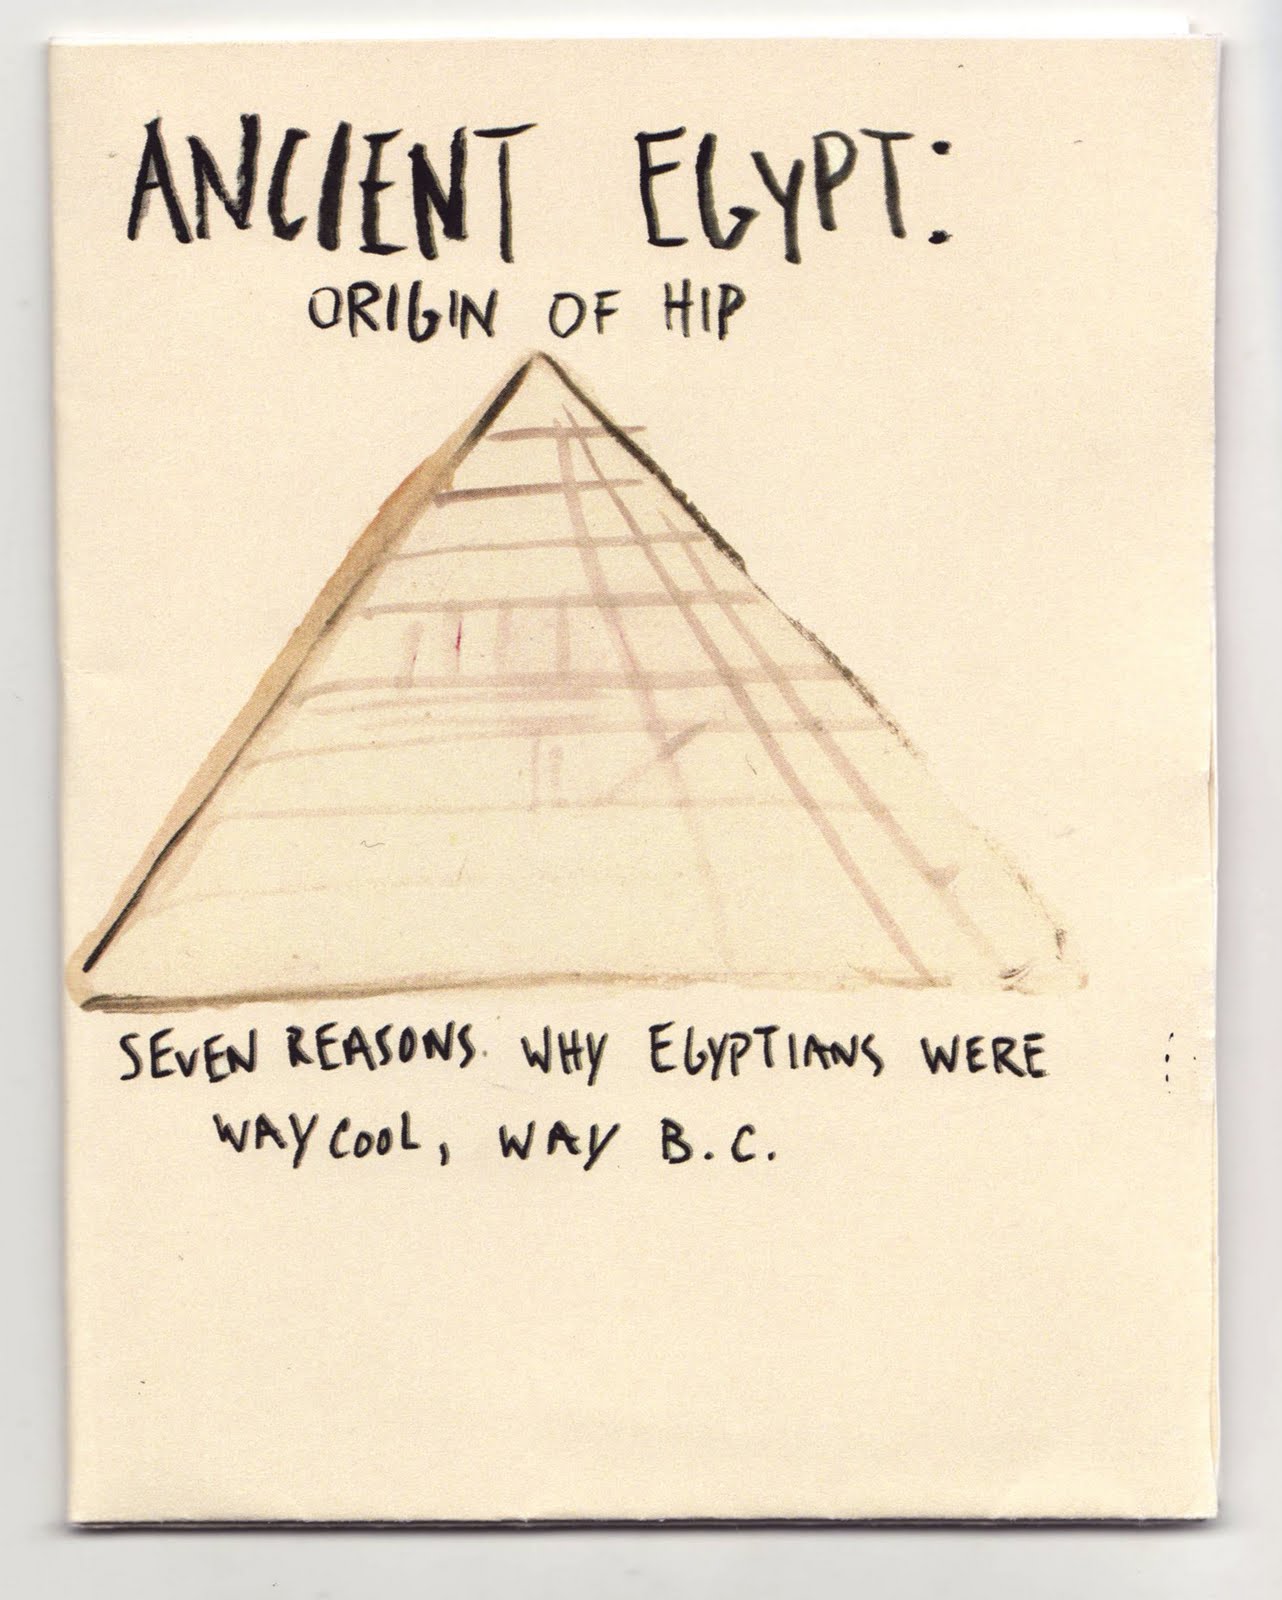 ANCIENT EGYPT:
ORIGIN OF HIP
SEVEN REASONS WHY EGYPTIANS WERE
WAY COOL, WAY B.C.